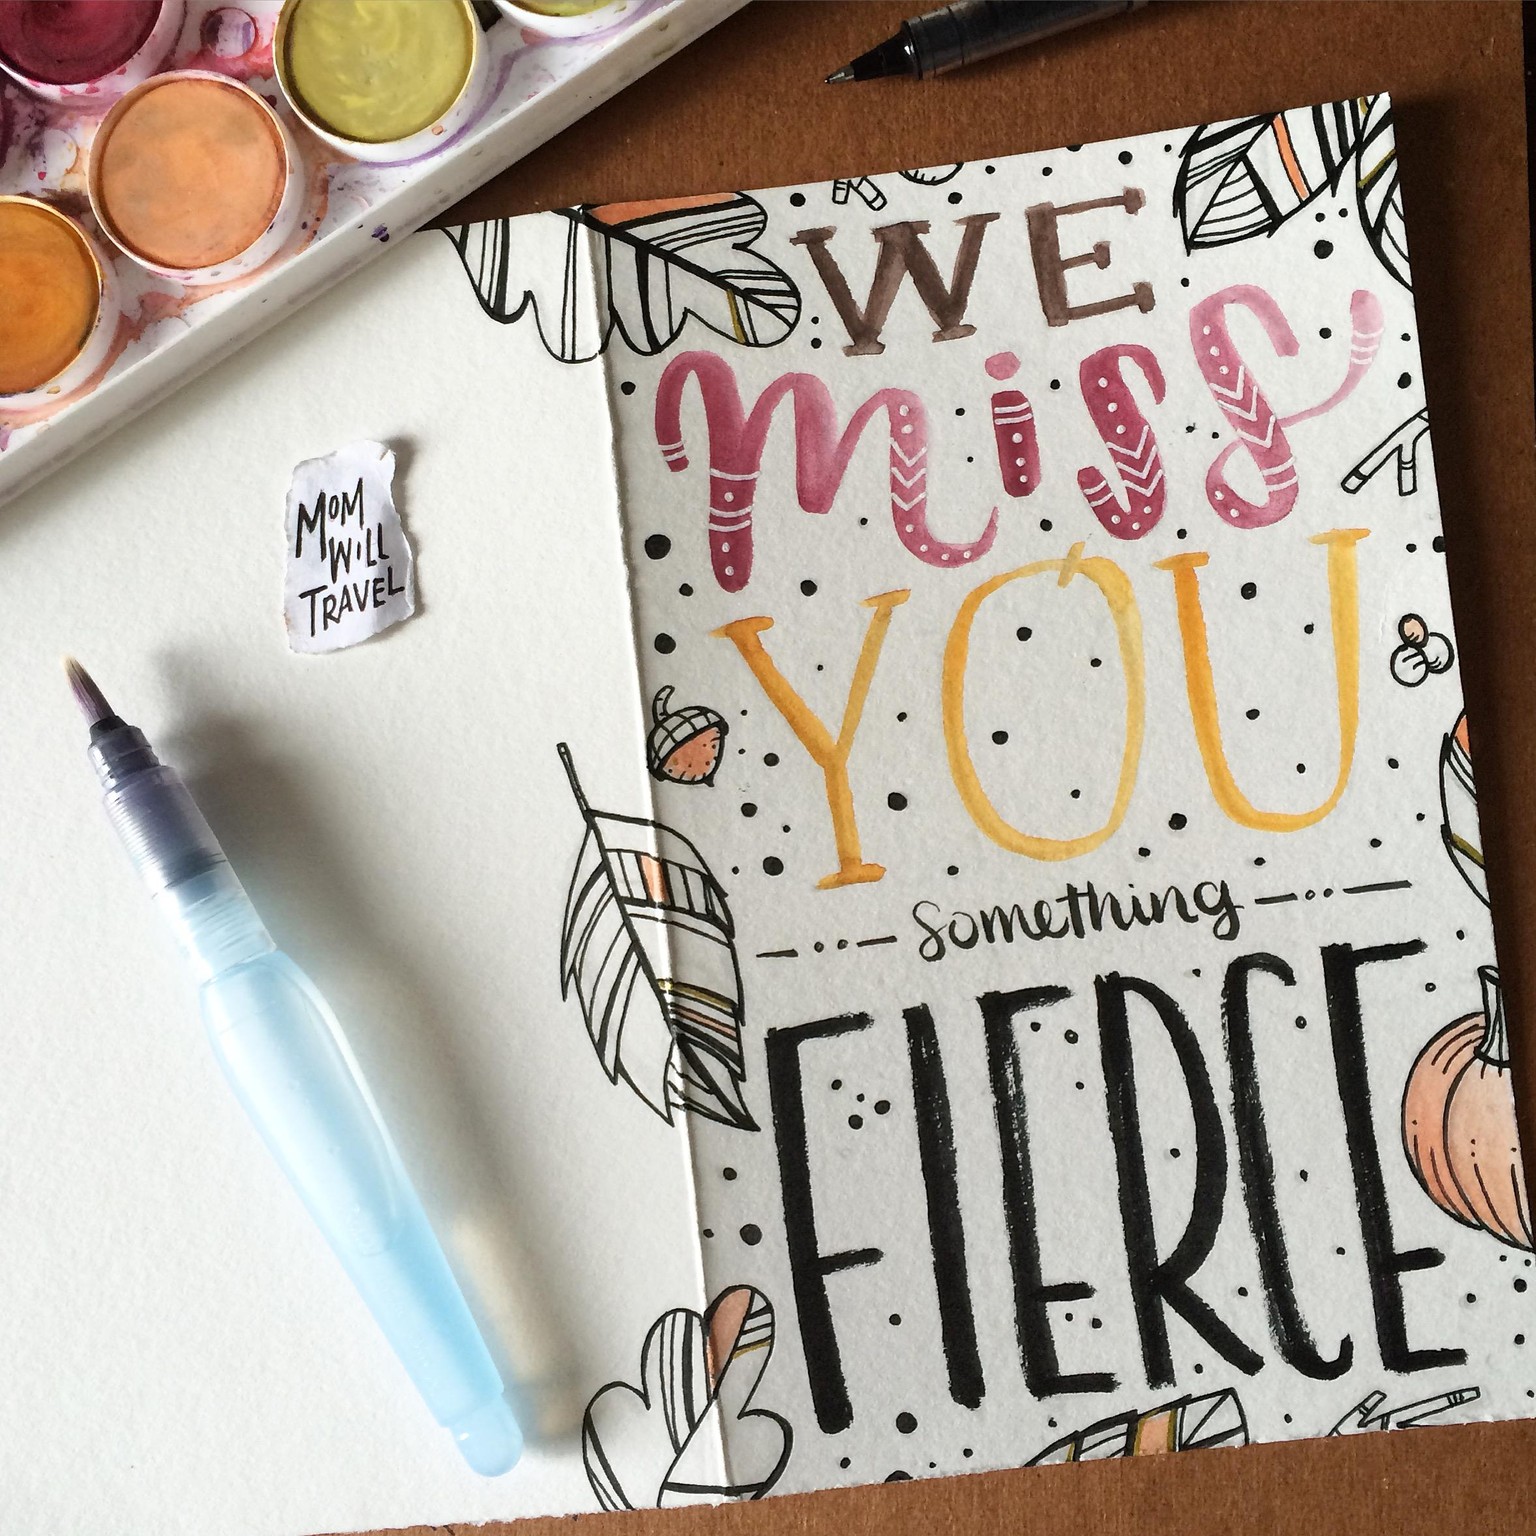 MOM
WILL
TRAVEL
WE
miss
YOU
something
FIERCE